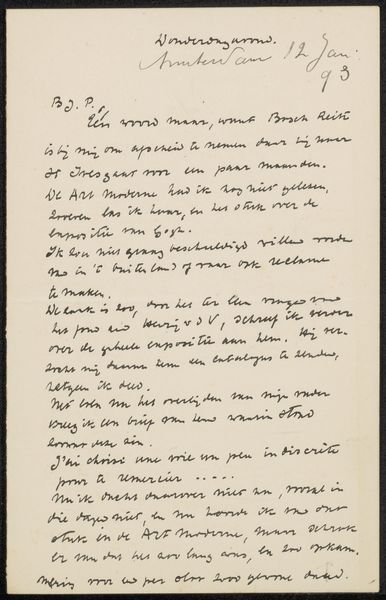 Donderdagavond.
Amsterdam 12 Jan.
93
B. J. P.,
Een woord maar, want Bosch Reitz
is bij mij om afscheid te nemen daar hij naar
St Ives gaat voor een paar maanden.
De Art Moderne had ik nog niet gelezen,
zooeven las ik haar, en het stuk over de
expositie van Gogh.
Ik zou niet graag beschuldigd willen worden
in 't buitenland of waar ook reclame
te maken.
De zaak is zoo, door het ter leen vragen van
het aan Henry v d V, schreef ik verder
over de geheele expositie aan hem. Hij ver-
zocht mij daarna hem een catalogus te zenden,
hetgeen ik deed.
Met het overlijden van mijn vader
kreeg ik een brief van hem waarin stond
deze zin.
J'ai choisi une voie un peu indiscrète
pour te remercier .....
Nu ik dacht daarover niet na, vooral in
die dagen niet, en nu hoorde ik van dat
stuk in de Art Moderne, maar schrok
er van dat het zoo lang was, en zoo
voor en per slot zoo gewone daad.